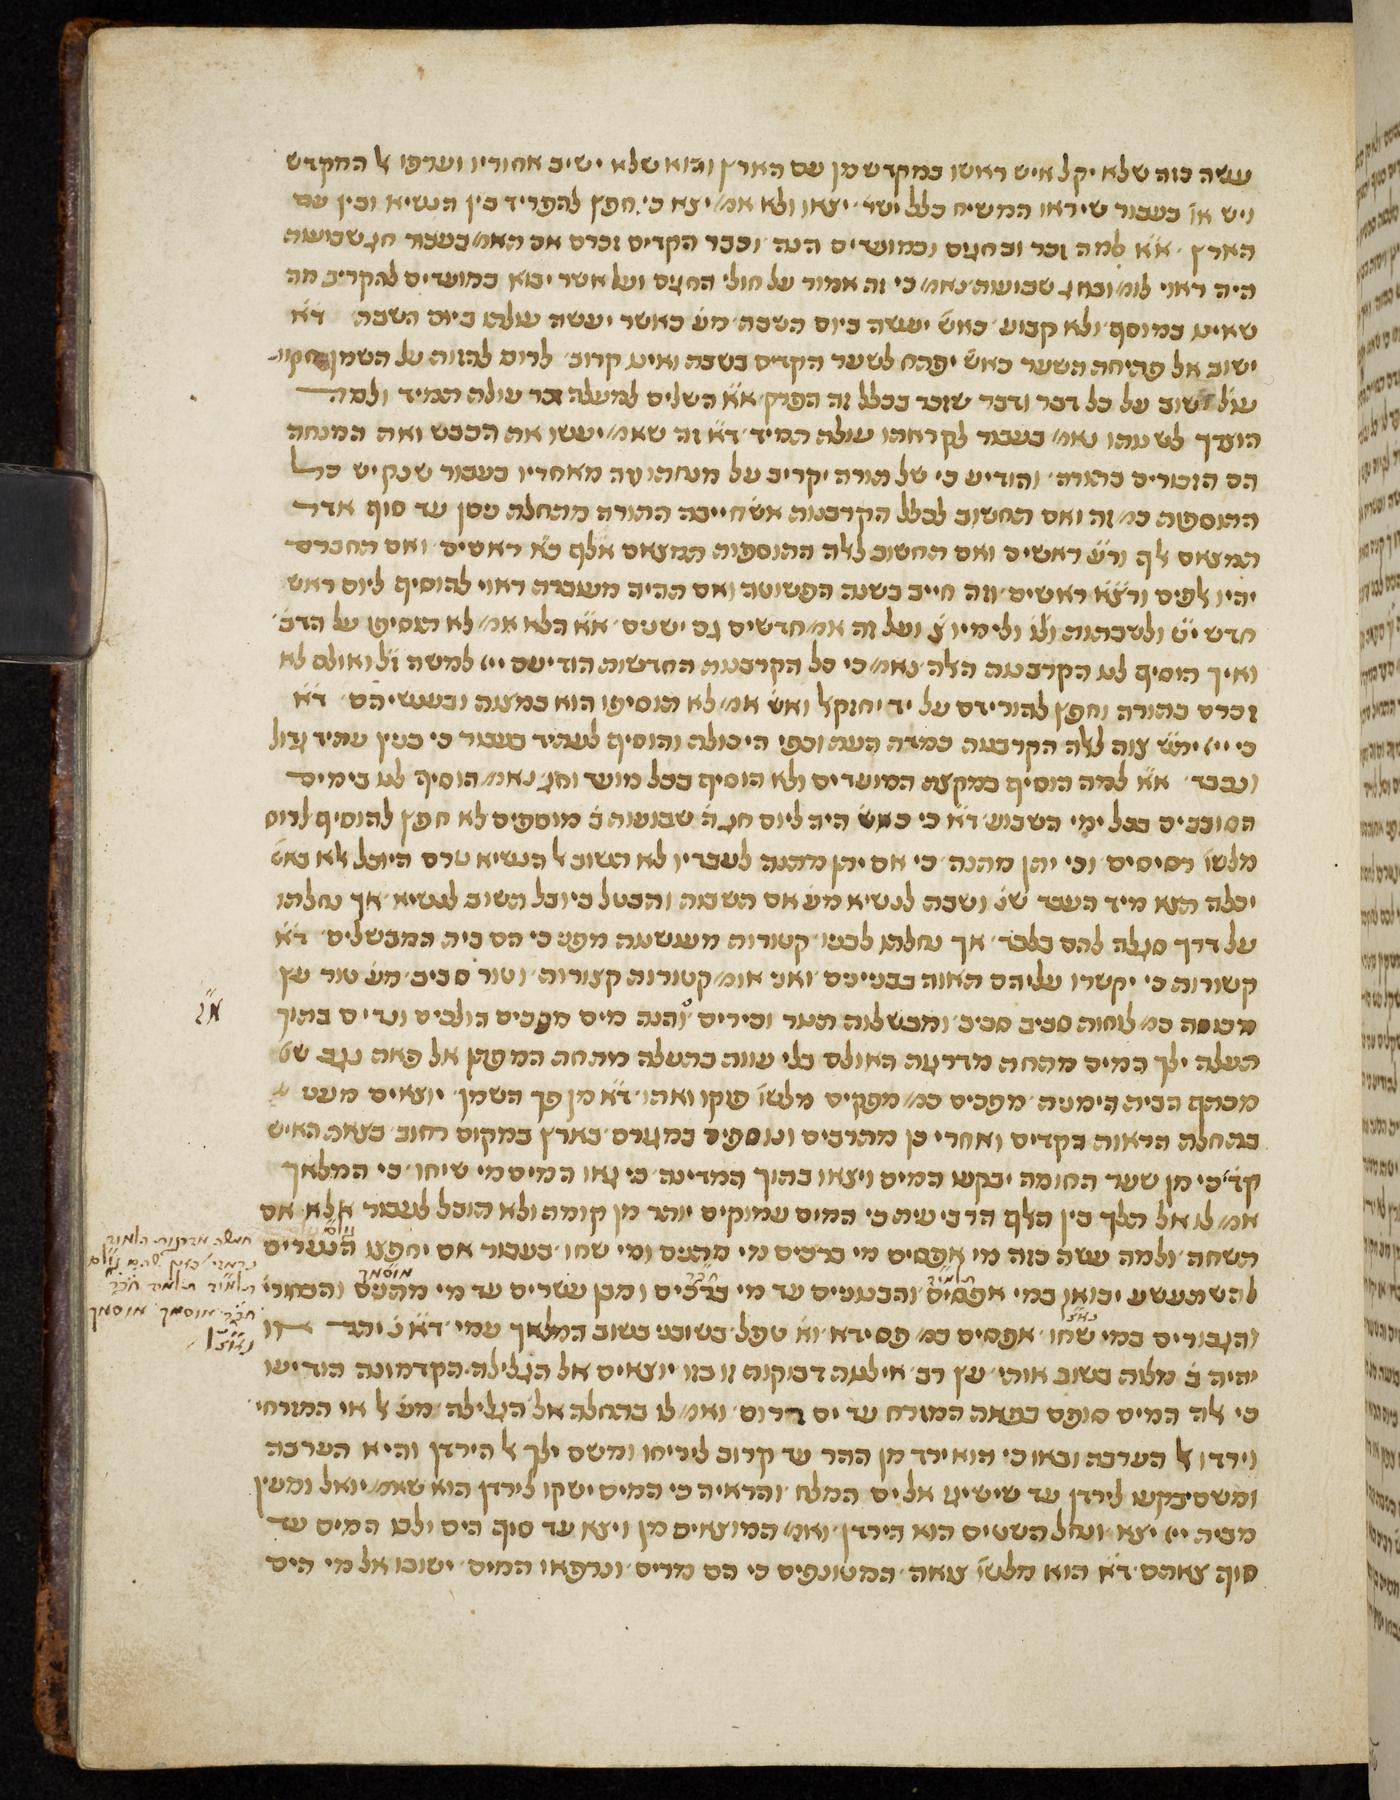 עשה כזה שלא יקל איש ראשו במקדש מן עם הארץ והוא שלא ישיב אחוריו וערפו אל הקדש
ויש או' בעבור שיראו המשיח כלל ישר' יצאו ולא אמ' יצא כי חפץ להפריד בין הנשיא ובין עם
הארץ א"א למה זכר ובחגים ובמועדים הנה וכבר הקדים זכרם אם האמ' בעבור חג שבועות
היה ראוי לומ' ובחג שבועות נאמ' כי זה אמור על חולי החגים ועל אשר יבוא במועדים להקריב מה
שאינו במוסף ולא קבוע כאש' יעשה ביום השבת מע' כאשר יעשה עולתו ביום השבת ד"א
ישוב אל פתיחת השער כאש' יפתח לשער הקדים בשבת ואינו קרוב לרום להזות על השמן
ישוב על כל דבר ודבר שזכר בכלל זה הפרק א"א השלים למעלה זכר עולת תמיד ולמה
הוצרך לשנותו נאמ' בעבור לקרותו עולת תמיד ד"א זה שאמ' יעשו את הכבש ואת המנחה
הם הזכורים בתורה והודיע כי של תורה יקריב על מנחתו מאחריו בעבור שנקיש כל
התוספות כמ' זה ואם תחשוב לכלל הקרבנות אש' חייבה התורה מתחלת ניסן עד סוף אדר
תמצאם אלף ור"ע ראשים ואם תחשוב לאלה התוספות תמצאם אלף כ"א ראשים ואם תחברם
יהיו אלפים ורצ"א ראשים וזה חייב בשנה הפשוטה ואם תהיה מעוברת ראוי להוסיף ליום ראש
חדש י"ט ולשבתות ולימיו ועל זה אמ' חדשים גם ישנים א"א הלא אמ' לא תוסיפו על הדב'
ואיך הוסיף לנו הקרבנות האלה נאמ' כי כל הקרבנות החדשות הודיעם יי' למשה ז"ל ואולם לא
זכרם בתורה וחפץ להורידם על יד יחזקאל ואש' אמ' לא תוסיפו הוא במצוה ובעונשיהם ד"א
כי יי' ית"ש צוה לאלה הקרבנות כמדת העת וכפי היכולת והוסיף לעתיד בעבור כי בנין עתיד גדול
ונכבד א"א למה הוסיף במקצת המועדים ולא הוסיף בכל מועד וחג נאמ' הוסיף לנו בימים
הסובבים בכל ימי השבוע ד"א כי כאש' היה ליום חג ה' שבועות ב' מוספים לא חפץ להוסיף לרוס
מלשו' רסיסים וכי יתן מתנה כי אם יתן מתנה לעבדיו לא תשוב אל הנשיא טרם היובל אלא כאש'
יכלה תצא מיד העבד שנ' ושבת לנשיא מע' אם השבות והבטל ביובל תשוב לנשיא אך נחלתו
על דרך סגלה להם בלבד אך נחלתו לבניו קטורות מעושנות מפני כי הם בית המבשלים ד"א
קשורות כי יקשרו עליהם האות בבניינם ואני אומ' קטורות קצורות וטור סביב מע' טור עץ
מכוסה כמ' לוחות סביב סביב ומבשלות תנור וכירים והנה מים מפכים הולכים ונדים בתוך
תעלה ילך המים מתחת מדרגת האולם בלי עוות בתעלה מתחת המפתן אל פאת נגב שנ'
מכתף הבית הימנית מפכים כמ' מפקים מלשו' פוקו ואתו ד"א מן פך השמן יוצאים מעט
בתחלה הראות בקדים ואחרי כן מתרבים ונוספים במגרם בארץ במקום רחוב בצאת האיש
קד' כי מן שער החומה יבקעו המים ויצאו בתוך המדינה כי גאו המים מי שיחו כי המלאך
אמ' לו אל תלך בין האלף הרביעית כי המים עמוקים יותר מן קומה ולא תוכל לעבור אלא אם
תשחה ולמה עשה כזה מי אפסים מי ברכים מי מתנים ומי שחו בעבור אם יחפצו הנערים
להשתעשע יבואו במי אפסים והבנונים עד מי ברכים ומבן עשרים עד מי מתנים והבחורי'
והגבורים במי שחו אפסים כמ' פס ידא וא' טפל בשובני בשוב המלאך עמי ד"א נ' יתר
יהיה ב' מלות בשוב אותי עץ רב אילנות דבוקות זו בזו יוצאים אל הגלילה הקדמונה הודיענו
כי אלה המים סופם בפאת המזרח עד ים דרום ואמ' לו בתחלה אל הגלילה מע' אל אי המזרחי
וירדו אל הערבה ובאו כי הוא ירד מן ההר עד קרוב ליריחו ומשם ילך אל הירדן והיא הערבה
ומשם יבקעו לירדן עד שישיגו אל ים המלח והראיה כי המים ישקו לירדן הוא שאמ' יואל ומעין
מבית יי' יצא ונחל השטים הוא הירדן ואמ' המוצאים מן ויצא עד סוף הים ולכו המים עד
סוף צאתם ד"א הוא מלשו' צואה המטונפים כי הם מרים ונרפאו המים ישובו אל מי הים
מוסמך
תלמיד